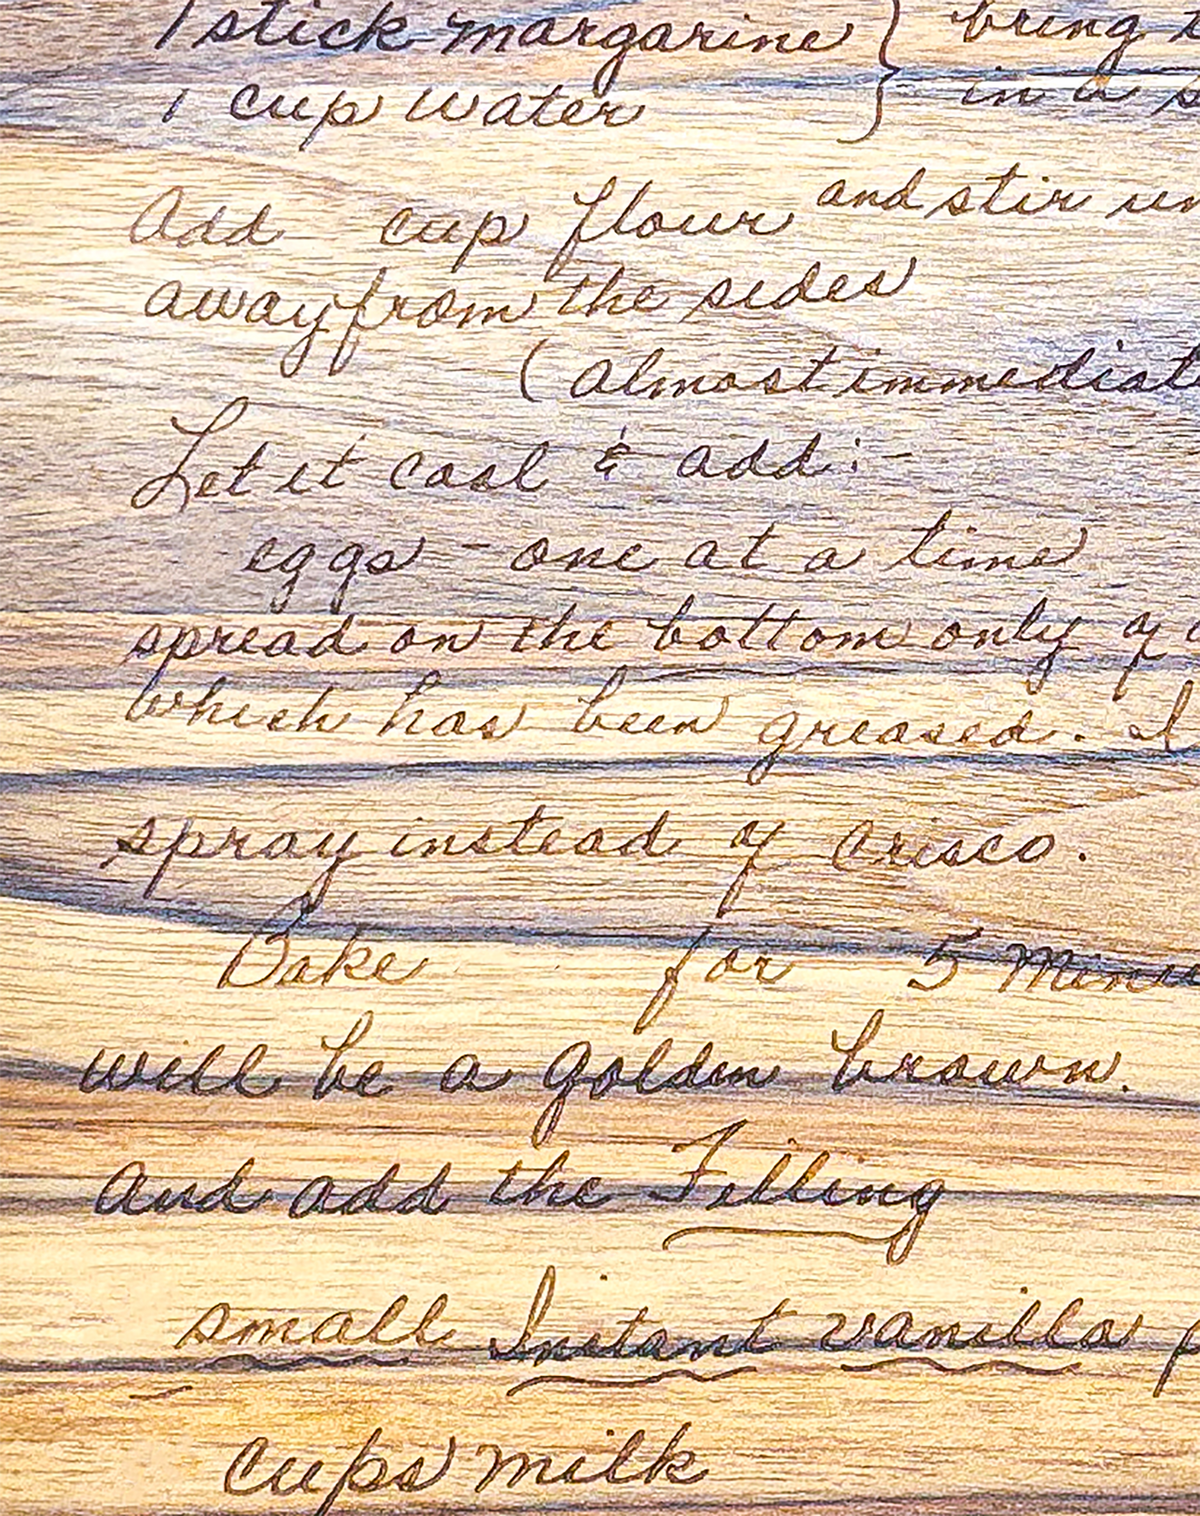 1 stick margarine } bring
1 cup water } in a
Add cup flour and stir
away from the sides
(almost immediat
Let it cool & add:-
eggs - one at a time
spread on the bottom only of
which has been greased. I
spray instead of Crisco.
Bake for 5 Minu
will be a golden brown.
And add the Filling
small Instant vanilla p
cups milk